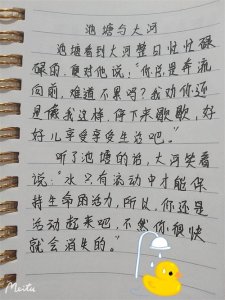 池塘与大河
池塘看到大河整日忙忙碌
碌的,便对他说:“你总是奔流
向前,难道不累吗?我劝你还
是像我这样,停下来歇歇,好
好儿享受享受生活吧。”
听了池塘的话,大河笑着
说:“水只有流动中才能保
持生命的活力,所以,你还是
活动起来吧,不然你很快
就会消失的。”
Meitu